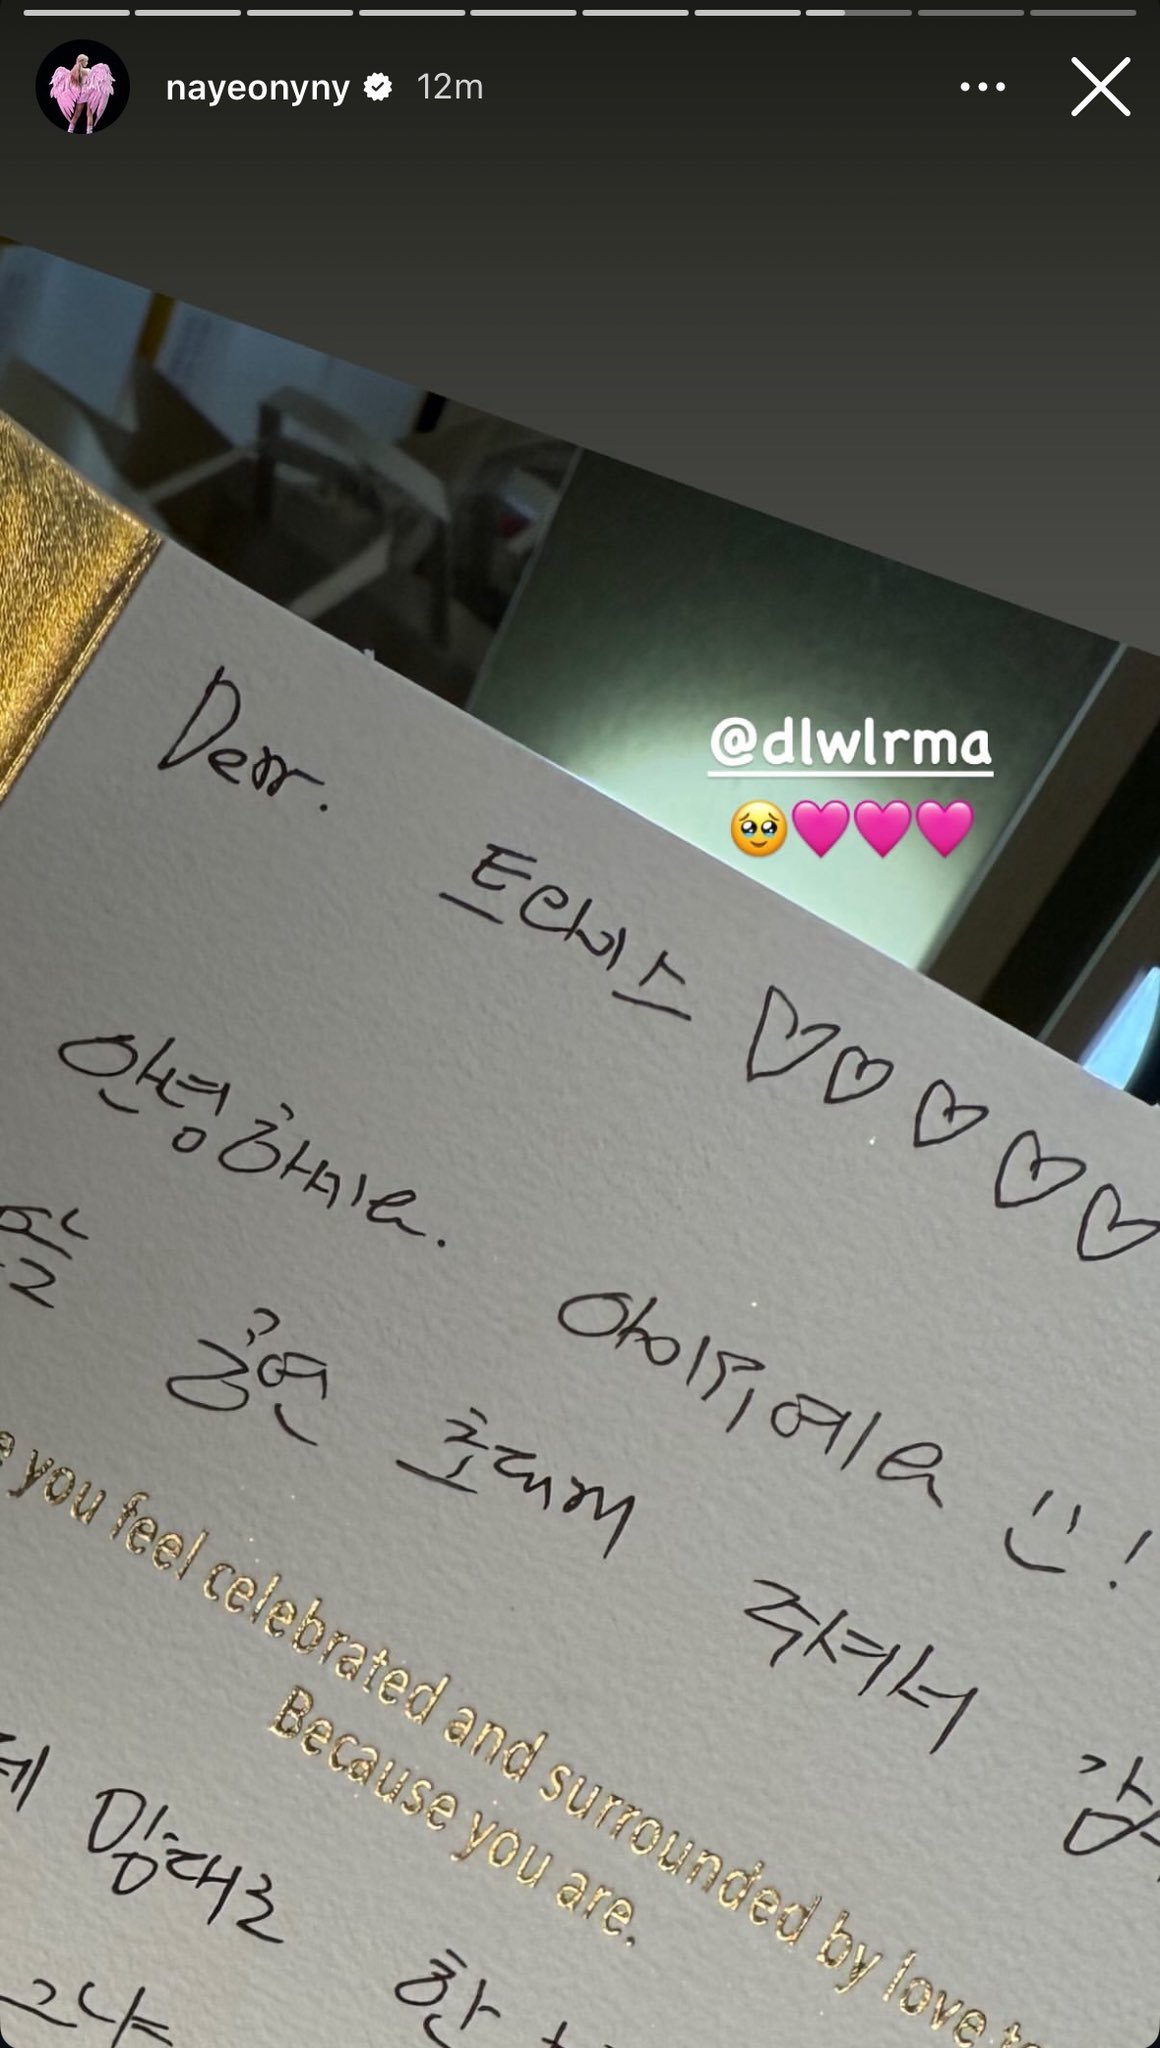 nayeonyny 12m
@dlwlrma
🥹🩷🩷🩷
Dear. 트와이스 ♡♡♡♡♡
안녕하세요. 아이유예요 :)!
공연 초대해 주셔서
you feel celebrated and surrounded by love
Because you are.
맘대로
그냥